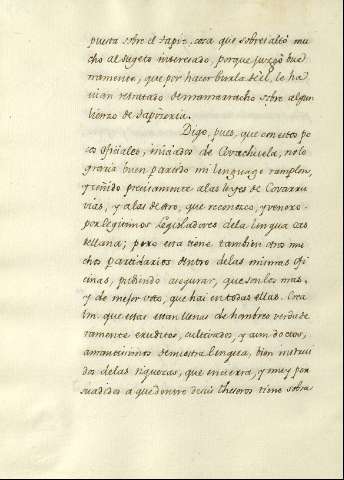 puesta sobre el tapiz. cosa que sobresaltó mu
cho al sugeto interesado, porque juzgó bue
namente, que por hacer burla de él, le ha
vian retratado de mamarracho sobre algun
lienzo de tapizeria.
Digo, pues, que con estos po
cos oficiales, iniciados de Covachuela, no lo
graria buen partido mi lenguage ramplon,
y ceñido precisamente a las leyes de Covarru
vias, y a las de otro, que reconozco, y venero
por legitimos Legisladores de la lengua cas
tellana; pero esta tiene tambien otros mu
chos partidarios dentro de las mismas ofi
cinas, pudiendo asegurar, que son los mas,
y de mejor voto, que hai en todas ellas. Crea
Vm. que estas estan llenas de hombres verdade
ramente eruditos, cultivados, y aun doctos,
amantisimos de nuestra lengua, bien instrui
dos de las riquezas, que encierra, y muy per
suadidos a que dentro de sus thesoros tiene sobra